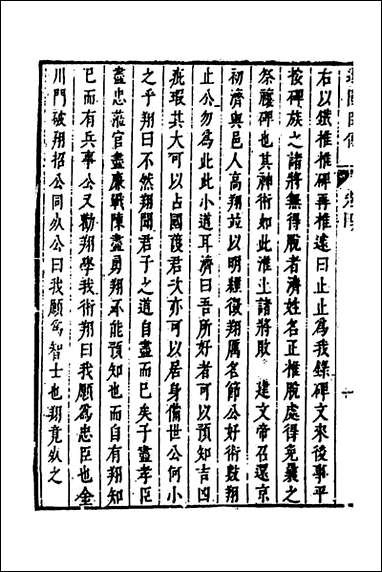 右以鐵椎椎碑再椎遽曰止止為我錄碑文來後事平
按碑族之諸將無得脫者濟姓名正椎脫處得免曩之
祭禳碑也其神術如此淮上諸將敗　建文帝召還京
初濟與邑人高翔並以明經徵翔厲名節公好術數翔
止公勿為此此小道耳濟曰吾所好者可以預知吉凶
疵瑕其大可以占國護君次亦可以居身備世公何小
之乎翔曰不然翔聞君子之道自盡而已矣子盡孝臣
盡忠蒞官盡廉戰陳盡勇翔不能預知也而自有翔知
已而有兵事公又勸翔學我術翔曰我願為忠臣也金
川門破翔招公同死公曰我願為智士也翔竟死之